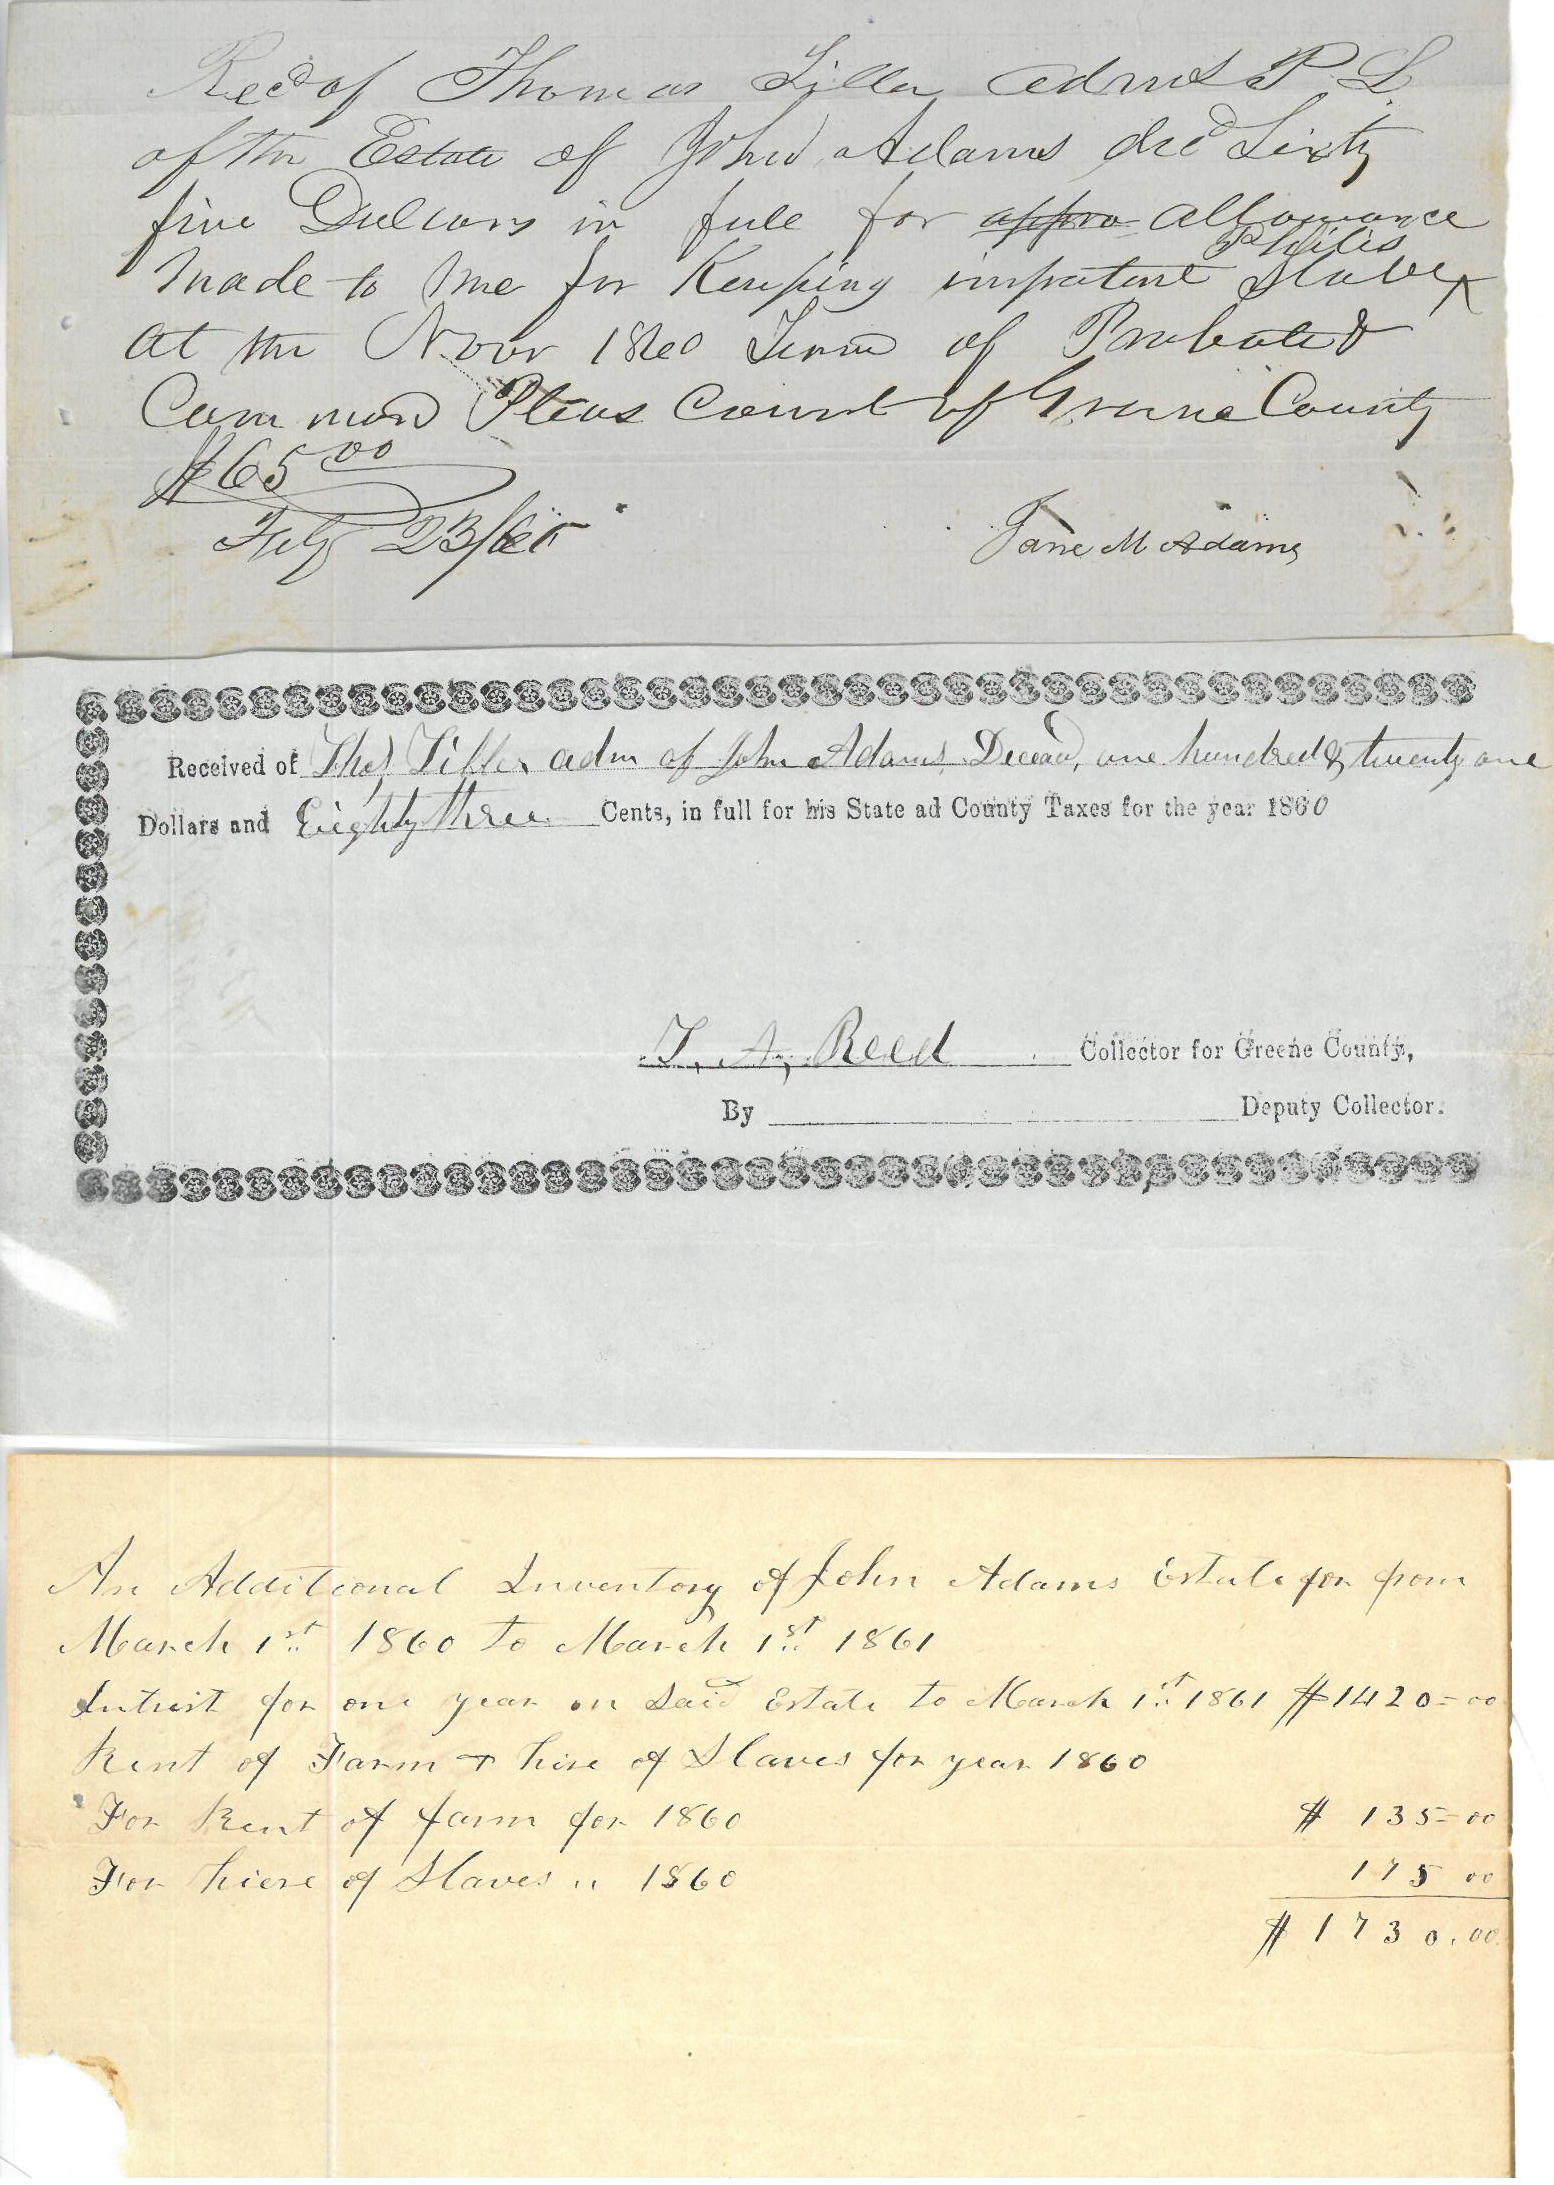 Recd of Thomas Tiller adms P. L.
of the Estate of John Adams decd Sixty
five Dollars in full for appro allowance
Philis
Made to me for Keeping impotent Slave ^
at the Novr 1860 Term of Probate &
Common Pleas Court of Greene County
$65 00
Jane M Adams
Received of Thos Tiller adm of John Adams Decead, one hundred & twenty one
Dollars and Eighty three Cents, in full for his State ad County Taxes for the year 1860
T. A. Reed Collector for Greene County,
By Deputy Collector.
An Additional Inventory of John Adams Estate for from
March 1st 1860 to March 1st 1861
Intrist for one year on Said Estate to March 1st 1861 $1420=00
Rent of Farm + hire of Slaves for year 1860
For Rent of farm for 1860 $ 135=00
For hiere of Slaves " 1860 175 00
$ 1730.00